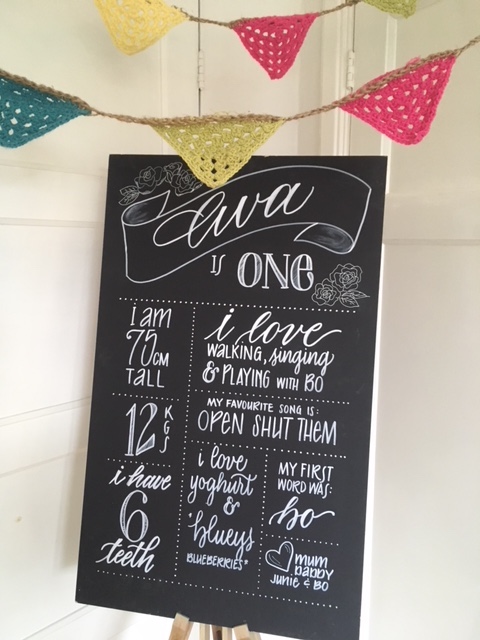 ava
is ONE
i am
75cm
tall
i love
WALKING, singing
& PLAYING WITH BO
12 KGS
MY FAVOURITE SONG IS:
OPEN SHUT THEM
i have
6
teeth
i love
yoghurt
&
'blueys
BLUEBERRIES"
MY FIRST
WORD WAS:
bo
mum
DADDY
JUNIE & BO